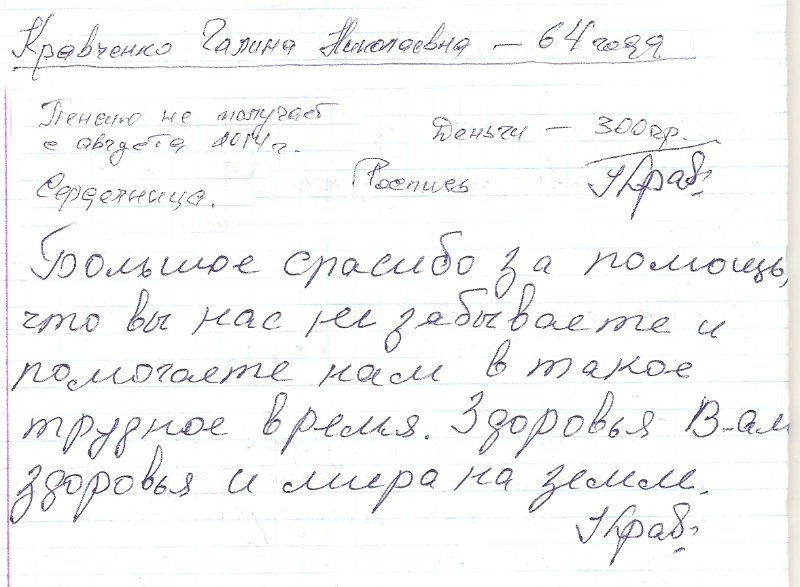 Кравченко Галина Николаевна – 64 года
Пенсию не получает
с августа 2014 г.
Деньги – 300 гр.
Сердечница.
Роспись
Крав
Большое спасибо за помощь,
что вы нас не забываете и
помогаете нам в такое
трудное время. Здоровья Вам
здоровья и мира на земле.
Крав